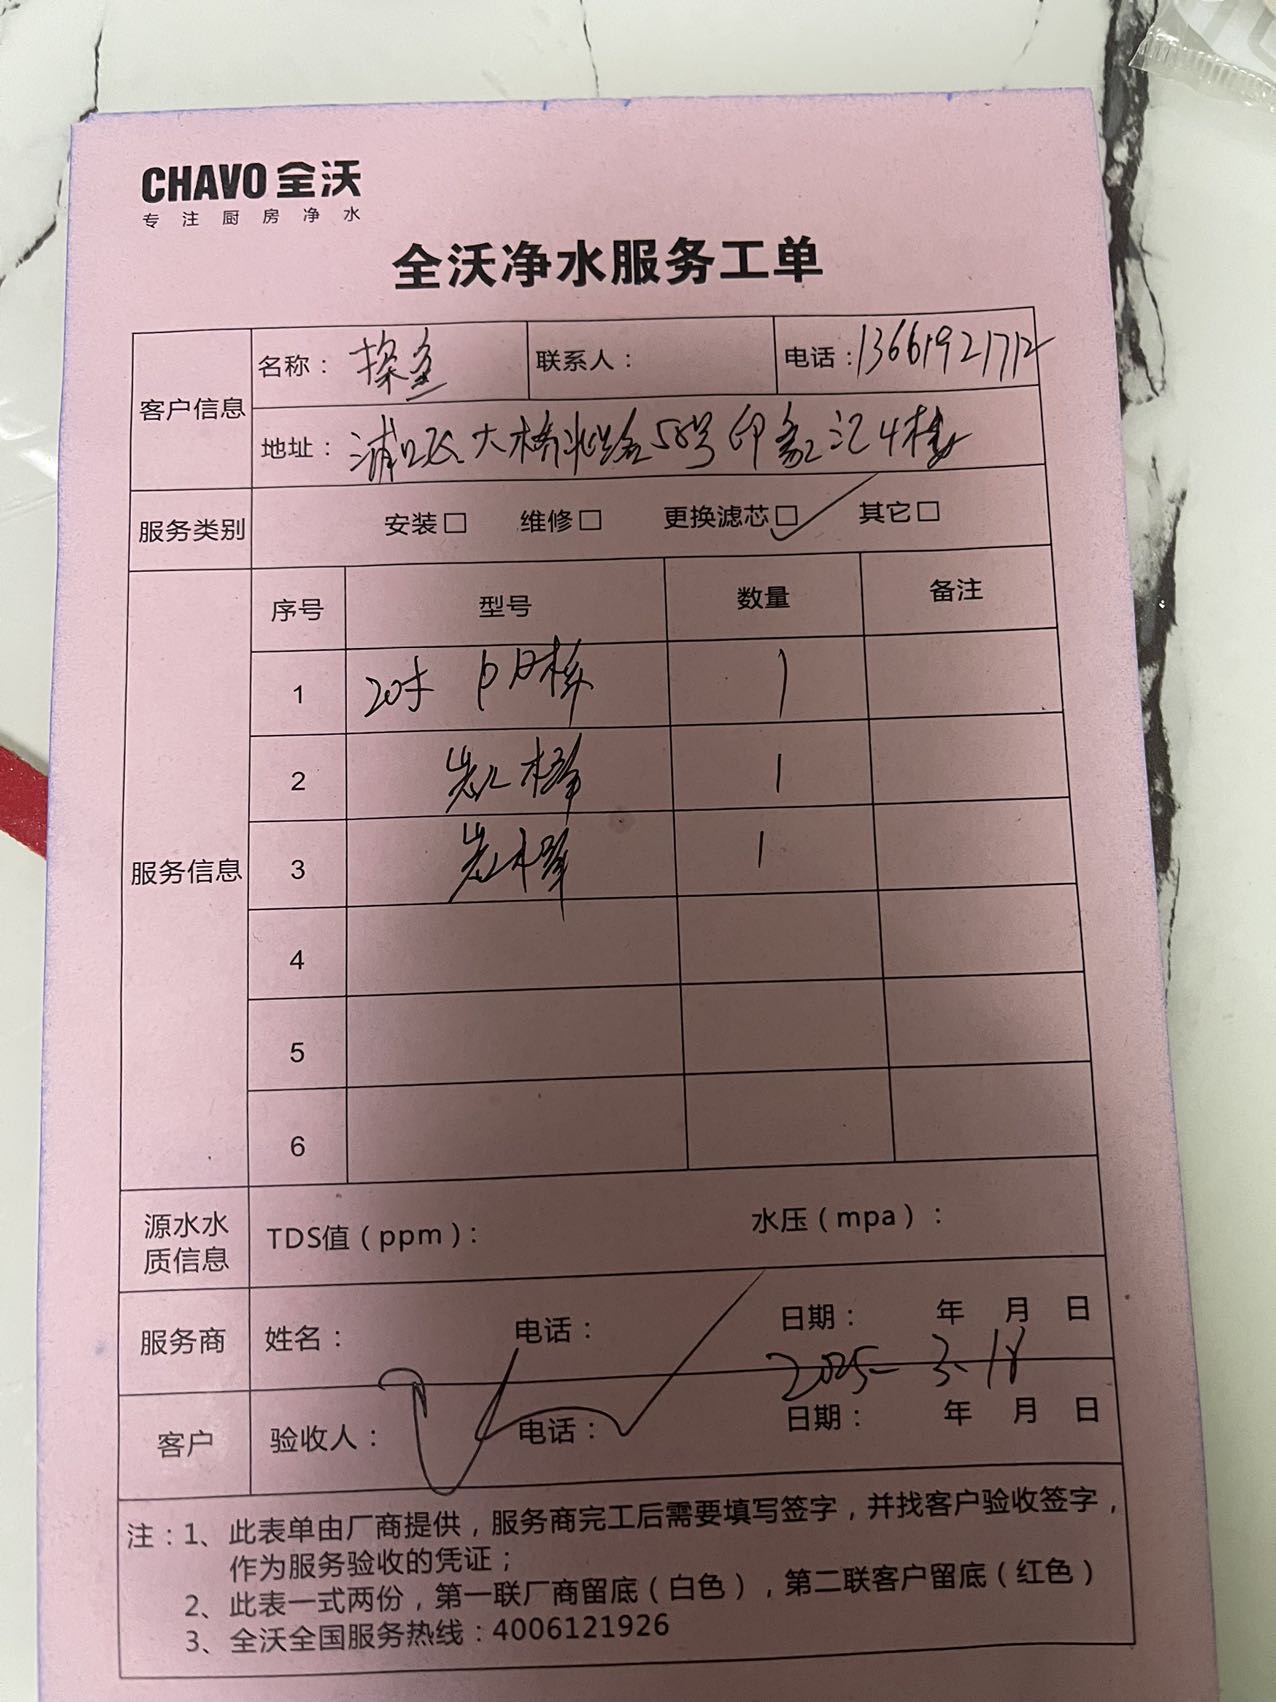 CHAVO 全沃
专注厨房净水
全沃净水服务工单
客户信息
名称： 联系人： 电话：13661921712
地址：浦口区大桥北路58号印象汇4楼
服务类别 安装□ 维修□ 更换滤芯□ 其它□
服务信息
序号 型号 数量 备注
1 20寸 PP棉 1
2 1
3 1
4
5
6
源水水质信息 TDS值（ppm）： 水压（mpa）：
服务商 姓名： 电话： 日期： 年 月 日
2025-3.18
客户 验收人： 电话： 日期： 年 月 日
注：1、此表单由厂商提供，服务商完工后需要填写签字，并找客户验收签字，
作为服务验收的凭证；
2、此表一式两份，第一联厂商留底（白色），第二联客户留底（红色）
3、全沃全国服务热线：4006121926